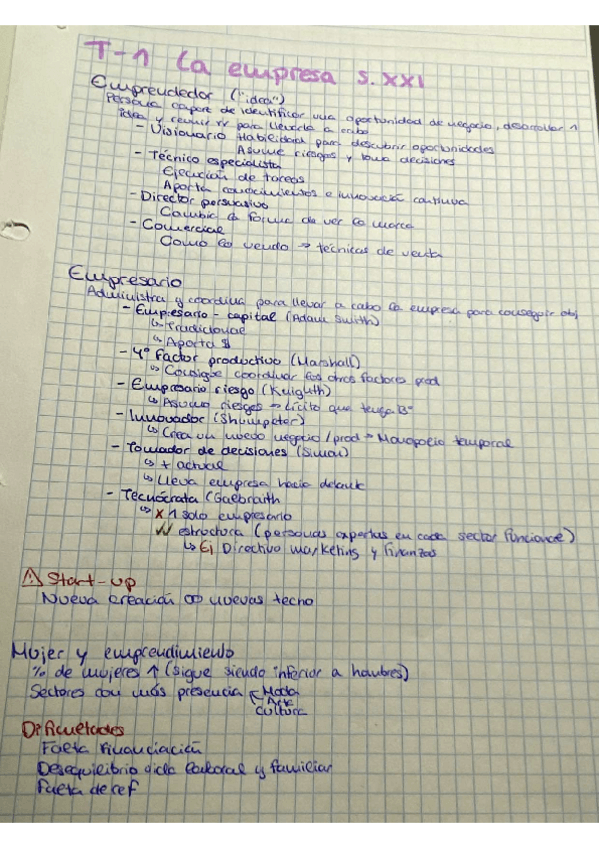 T-1 La empresa s.XXI
Emprendedor ("idea")
Persona capaz de identificar una oportunidad de negocio, desarrollar 1
idea y reunir rr para llevarla a cabo
- Visionario Habilidad para descubrir oportunidades
Asume riesgos y toma decisiones
- Técnico especialista
Ejecución de tareas
Aporta conocimientos e innovación continua
- Director persuasivo
Cambia la forma de ver la marca
- Comercial
Como lo vendo → técnicas de venta
Empresario
Administra y coordina para llevar a cabo la empresa para conseguir obj
- Empresario - capital (Adam Smith)
↳ Tradicional
↳ Aporta $
- 4º Factor productivo (Marshall)
↳ Consigue coordinar los otros factores prod
- Empresario riesgo (Kniguth)
↳ Asume riesgos → Lícito que tenga Bº
- Innovador (Shumpeter)
↳ Crea un nuevo negocio/prod → Monopolio temporal
- Tomador de decisiones (Simon)
↳ + actual
↳ Lleva empresa hacia delante
- Tecnócrata (Galbraith
↳ X 1 solo empresario
✓ estructura (personas expertas en cada sector funcional)
↳ Ej Directivo marketing y finanzas
⚠ Start-up
Nueva creación ∞ nuevas tecno
Mujer y emprendimiento
% de mujeres ↑ (sigue siendo inferior a hombres)
Sectores con más presencia Moda
Arte
Cultura
Dificultades
Falta financiación
Desequilibrio vida laboral y familiar
Falta de ref